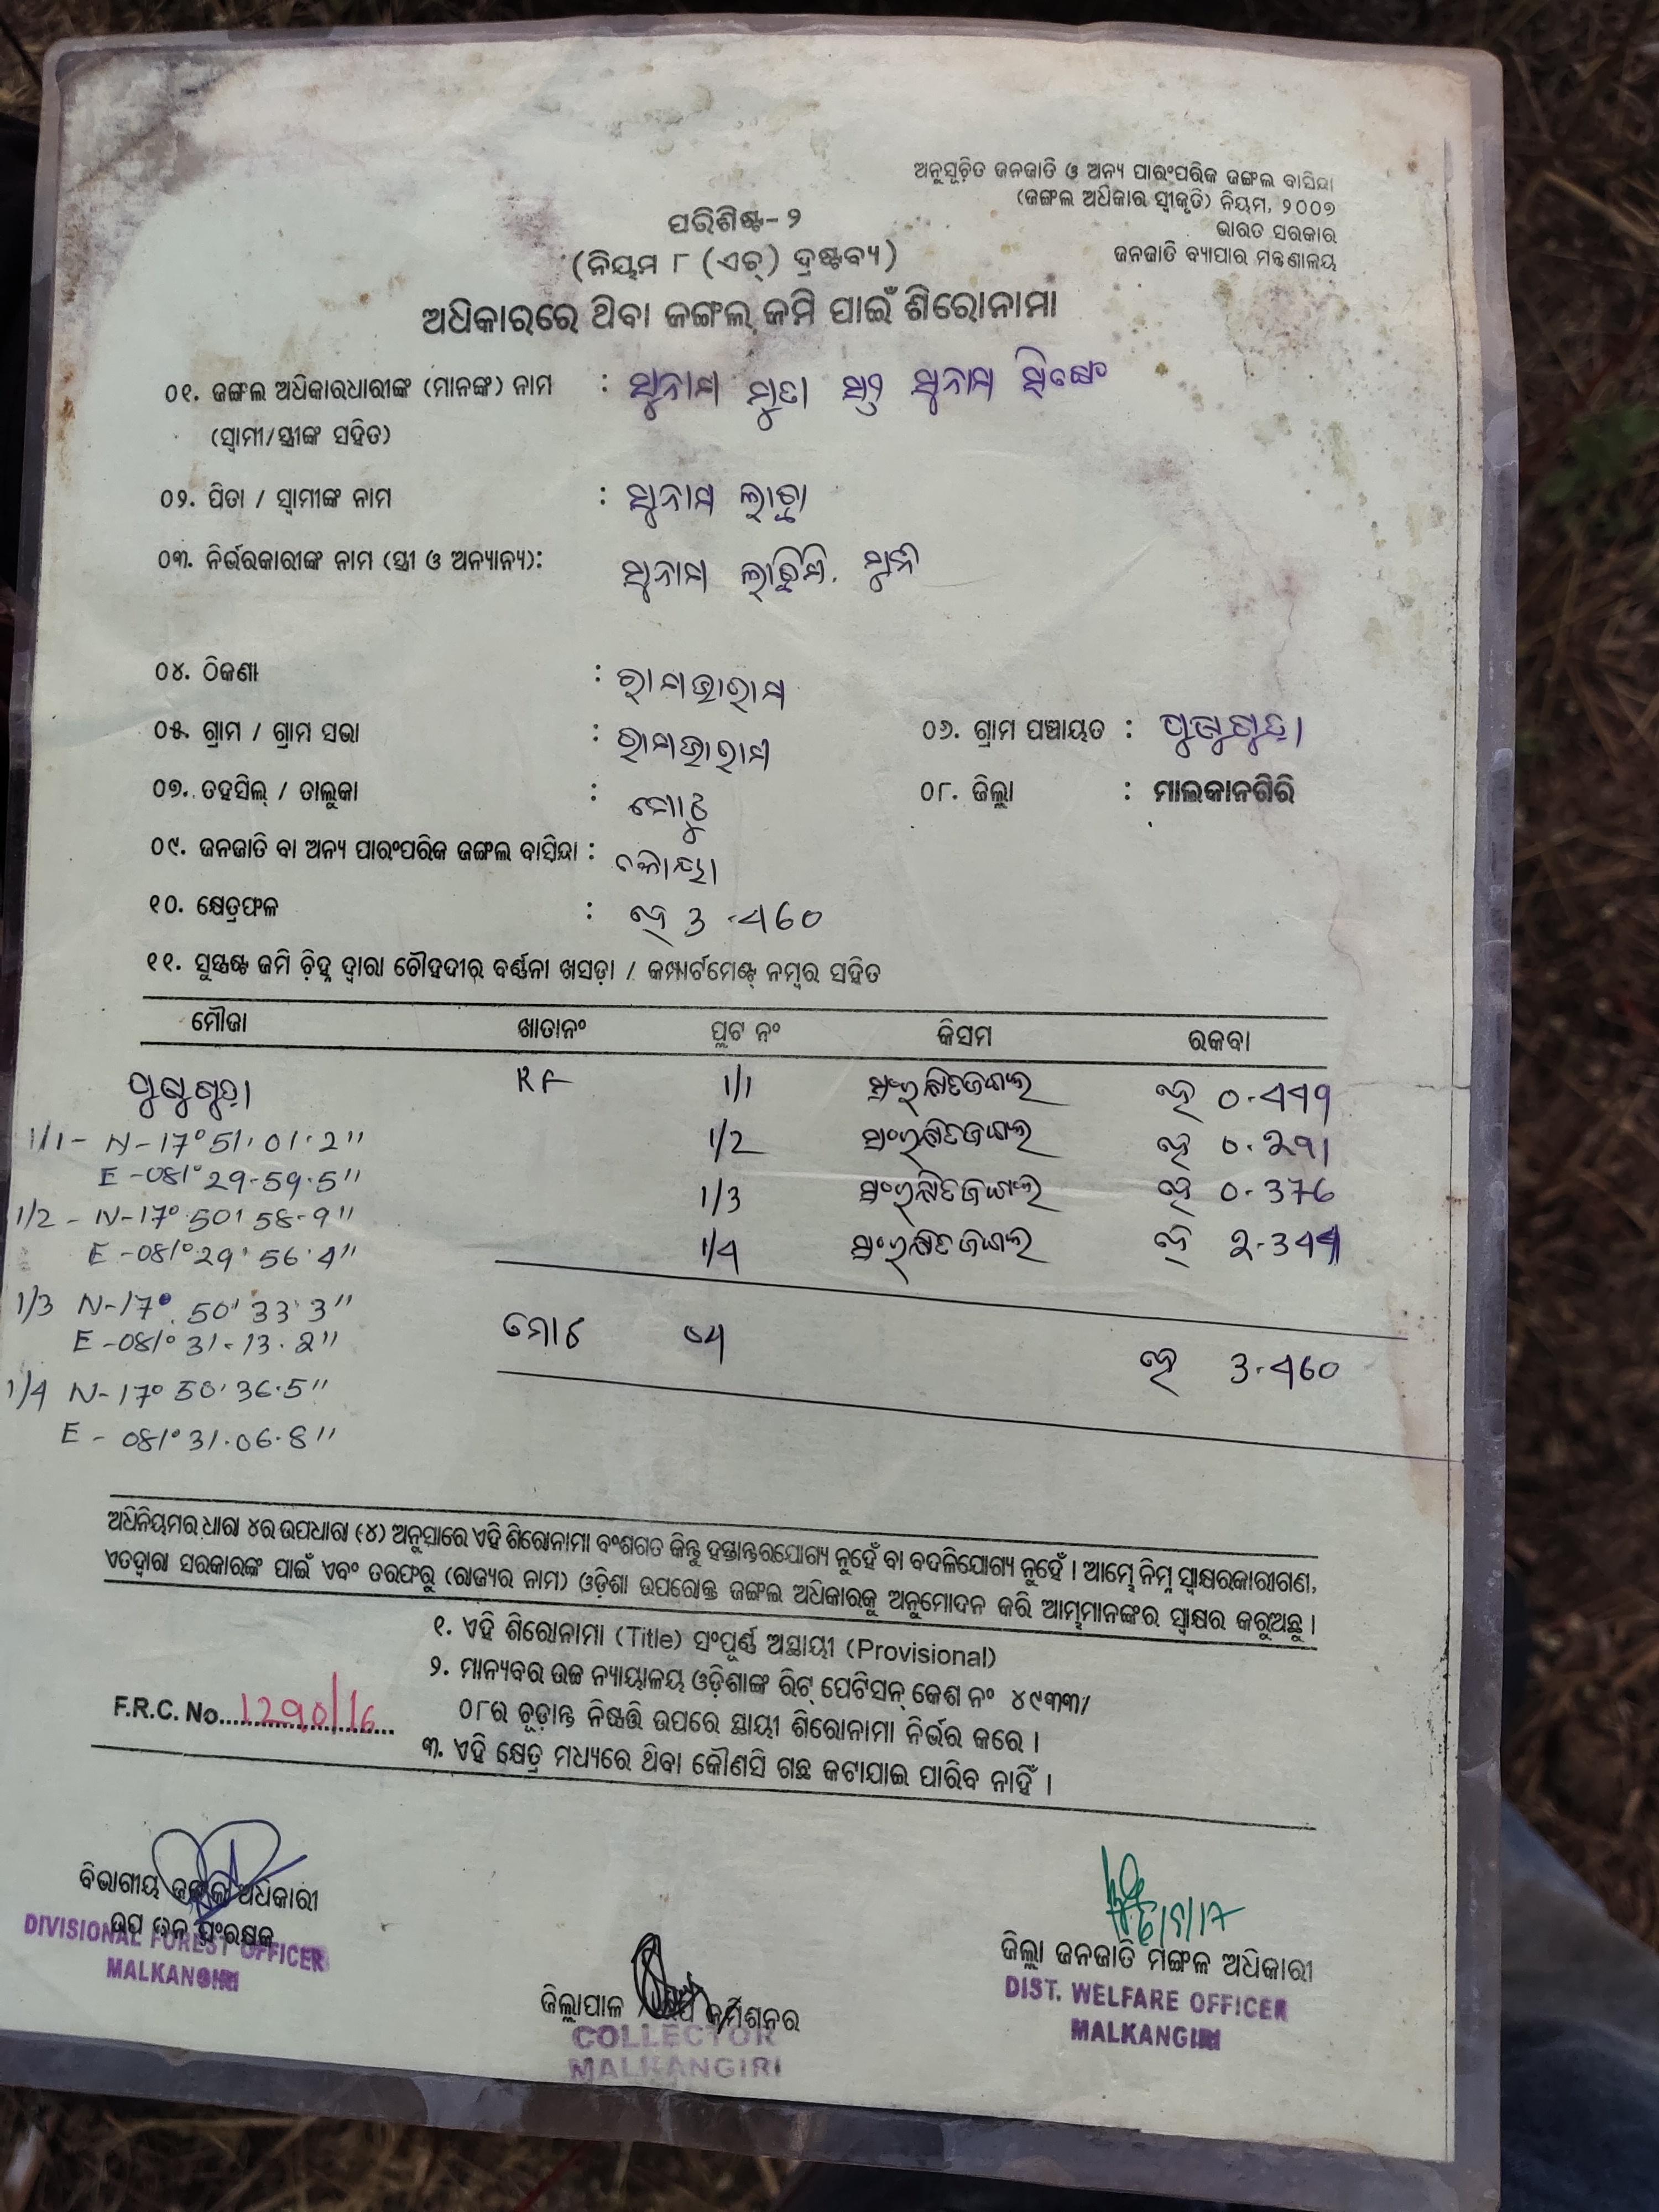 ଅନୁସୂଚିତ ଜନଜାତି ଓ ଅନ୍ୟ ପାରଂପରିକ ଜଙ୍ଗଲ ବାସିନ୍ଦା
(ଜଙ୍ଗଲ ଅଧିକାର ସ୍ୱୀକୃତି) ନିୟମ, ୨୦୦୭
ଭାରତ ସରକାର
ଜନଜାତି ବ୍ୟାପାର ମନ୍ତ୍ରଣାଳୟ
ପରିଶିଷ୍ଟ-୨
(ନିୟମ ୮ (ଏଚ୍) ଦ୍ରଷ୍ଟବ୍ୟ)
ଅଧିକାରରେ ଥିବା ଜଙ୍ଗଲ ଜମି ପାଇଁ ଶିରୋନାମା
୦୧. ଜଙ୍ଗଲ ଅଧିକାରଧାରୀଙ୍କ (ମାନଙ୍କ) ନାମ :
(ସ୍ୱାମୀ/ସ୍ତ୍ରୀଙ୍କ ସହିତ)
୦୨. ପିତା / ସ୍ୱାମୀଙ୍କ ନାମ :
୦୩. ନିର୍ଭରକାରୀଙ୍କ ନାମ (ସ୍ତ୍ରୀ ଓ ଅନ୍ୟାନ୍ୟ):
୦୪. ଠିକଣା :
୦୫. ଗ୍ରାମ / ଗ୍ରାମ ସଭା : ୦୬. ଗ୍ରାମ ପଞ୍ଚାୟତ :
୦୭. ତହସିଲ୍ / ତାଲୁକା : ମୋଟୁ ୦୮. ଜିଲ୍ଲା : ମାଲକାନଗିରି
୦୯. ଜନଜାତି ବା ଅନ୍ୟ ପାରଂପରିକ ଜଙ୍ଗଲ ବାସିନ୍ଦା : କୋୟା
୧୦. କ୍ଷେତ୍ରଫଳ : ହେ 3.460
୧୧. ସୁସ୍ପଷ୍ଟ ଜମି ଚିହ୍ନ ଦ୍ୱାରା ଚୌହଦୀର ବର୍ଣ୍ଣନା ଖସଡ଼ା / କମ୍ପାର୍ଟମେଣ୍ଟ୍ ନମ୍ବର ସହିତ
ମୌଜା ଖାତାନଂ ପ୍ଲଟ ନଂ କିସମ ରକବା
RF 1/1 ସଂରକ୍ଷିତ ଜଙ୍ଗଲ ହେ
1/1- N-17° 51' 01.2" 1/2 ସଂରକ୍ଷିତ ଜଙ୍ଗଲ ହେ
E-081° 29-59.5" 1/3 ସଂରକ୍ଷିତ ଜଙ୍ଗଲ ହେ 0.376
1/2 - N-17° 50' 58.9" 1/4 ସଂରକ୍ଷିତ ଜଙ୍ଗଲ ହେ
E-081° 29' 56.4"
1/3 N-17° 50' 33.3" ମୋଟ ହେ 3.460
E-081° 31-13.2"
1/4 N-17° 50' 36.5"
E - 081° 31.06.8"
ଅଧିନିୟମର ଧାରା ୪ର ଉପଧାରା (୪) ଅନୁସାରେ ଏହି ଶିରୋନାମା ବଂଶଗତ କିନ୍ତୁ ହସ୍ତାନ୍ତରଯୋଗ୍ୟ ନୁହେଁ ବା ବଦଳିଯୋଗ୍ୟ ନୁହେଁ । ଆମ୍ଭେ ନିମ୍ନ ସ୍ୱାକ୍ଷରକାରୀଗଣ,
ଏତଦ୍ୱାରା ସରକାରଙ୍କ ପାଇଁ ଏବଂ ତରଫରୁ (ରାଜ୍ୟର ନାମ) ଓଡ଼ିଶା ଉପରୋକ୍ତ ଜଙ୍ଗଲ ଅଧିକାରକୁ ଅନୁମୋଦନ କରି ଆମ୍ଭମାନଙ୍କର ସ୍ୱାକ୍ଷର କରୁଅଛୁ ।
୧. ଏହି ଶିରୋନାମା (Title) ସଂପୂର୍ଣ୍ଣ ଅସ୍ଥାୟୀ (Provisional)
୨. ମାନ୍ୟବର ଉଚ୍ଚ ନ୍ୟାୟାଳୟ ଓଡ଼ିଶାଙ୍କ ରିଟ୍ ପେଟିସନ୍ କେଶ ନଂ ୪୯୩୩/
୦୮ର ଚୂଡ଼ାନ୍ତ ନିଷ୍ପତ୍ତି ଉପରେ ସ୍ଥାୟୀ ଶିରୋନାମା ନିର୍ଭର କରେ ।
F.R.C. No. 1290/16
୩. ଏହି କ୍ଷେତ୍ର ମଧ୍ୟରେ ଥିବା କୌଣସି ଗଛ କଟାଯାଇ ପାରିବ ନାହିଁ ।
ବିଭାଗୀୟ ଜଙ୍ଗଲ ଅଧିକାରୀ
ଉପ ବନ ସଂରକ୍ଷକ
DIVISIONAL FOREST OFFICER
MALKANGIRI
ଜିଲ୍ଲାପାଳ / ଉପ କମିଶନର
COLLECTOR
MALKANGIRI
ଜିଲ୍ଲା ଜନଜାତି ମଙ୍ଗଳ ଅଧିକାରୀ
DIST. WELFARE OFFICER
MALKANGIRI